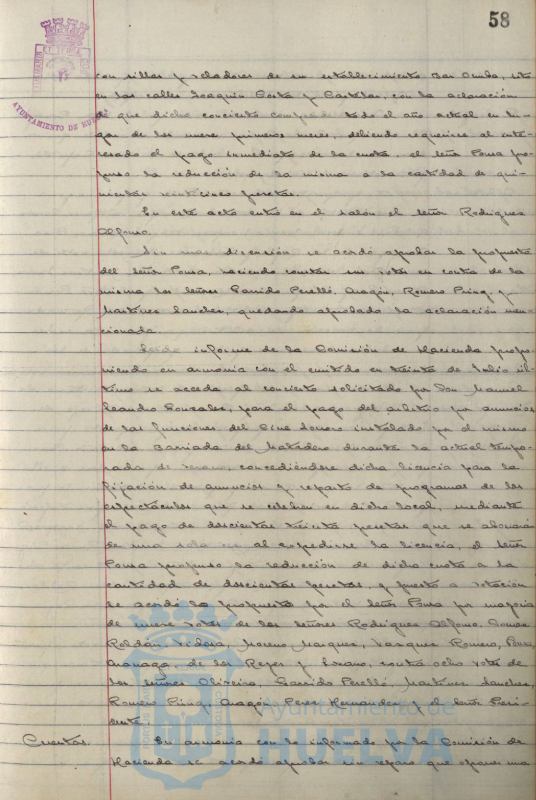 58
AYUNTAMIENTO DE HUELVA
con sillas y veladores de su establecimiento Bar Onuba, sito
en las calles Joaquín Costa y Castelar, con la aclaración
de que dicho concierto comprende todo el año actual en lu-
gar de los nueve primeros meses, debiendo requerirse al inte-
resado el pago inmediato de la cuota, el señor Ponsa pro-
puso la reducción de la misma a la cantidad de qui-
nientas veinticinco pesetas.
En este acto entró en el salón el señor Rodríguez
Alfonso.
Sin más discusión se acordó aprobar la propuesta
del señor Ponsa, haciendo constar sus votos en contra de la
misma los señores Garrido Perelló, Aragón, Romero y
Martínez Sánchez, quedando aprobada la aclaración men-
cionada.
Leído informe de la Comisión de Hacienda propo-
niendo en armonía con el emitido en treinta de Julio úl-
timo se acceda al concierto solicitado por Don Manuel
Leandro González, para el pago del arbitrio por anuncios
de las funciones del Cine Sonoro instalado por el mismo
en la Barriada del Matadero durante la actual tempo-
rada de verano, concediéndose dicha licencia para la
fijación de anuncios y reparto de programas de los
espectáculos que se celebren en dicho local, mediante
el pago de doscientas treinta pesetas que se abonarán
de una sola vez al expedirse la licencia, el señor
Ponsa propuso la reducción de dicha cuota a la
cantidad de doscientas pesetas, y puesto a votación
se acordó lo propuesto por el señor Ponsa por mayoría
de nueve votos de los señores Rodríguez Alfonso,
Roldán, Vidosa, Moreno Márquez, Vázquez Romero, Ponsa,
de los Reyes y Lozano, contra ocho votos de
los señores Oliveira, Garrido Perelló, Martínez Sánchez,
Romero, Aragón, Pérez Hernández y el señor Presi-
dente.
Cuentas. En armonía con lo informado por la Comisión de
Hacienda se acordó aprobar sin reparo que oponer una
Ayuntamiento de
HUELVA